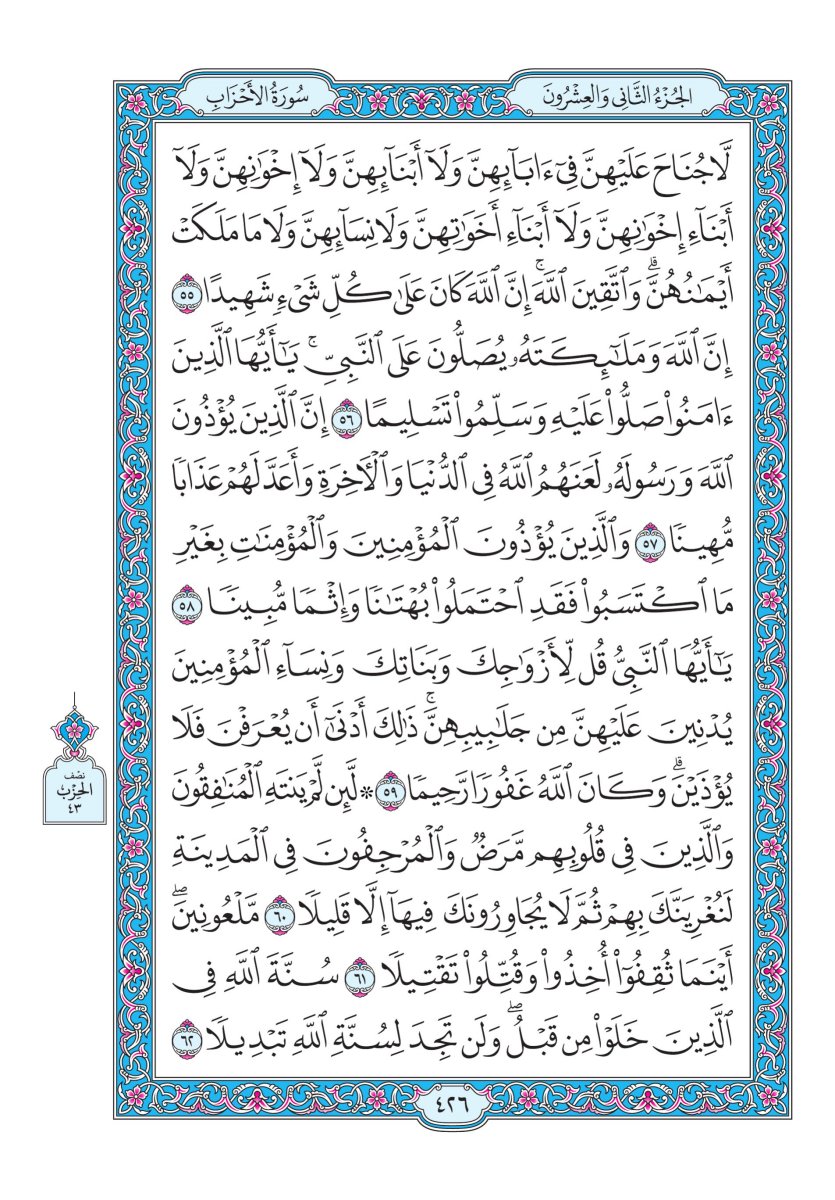 الجُزْءُ الثَّانِي وَالعِشْرُونَ
سُورَةُ الأَحْزَابِ
لَّا جُنَاحَ عَلَيْهِنَّ فِىٓ ءَابَآئِهِنَّ وَلَآ أَبْنَآئِهِنَّ وَلَآ إِخْوَٰنِهِنَّ وَلَآ
أَبْنَآءِ إِخْوَٰنِهِنَّ وَلَآ أَبْنَآءِ أَخَوَٰتِهِنَّ وَلَا نِسَآئِهِنَّ وَلَا مَا مَلَكَتْ
أَيْمَٰنُهُنَّۗ وَٱتَّقِينَ ٱللَّهَۚ إِنَّ ٱللَّهَ كَانَ عَلَىٰ كُلِّ شَىْءٍ شَهِيدًا ٥٥
إِنَّ ٱللَّهَ وَمَلَٰٓئِكَتَهُۥ يُصَلُّونَ عَلَى ٱلنَّبِىِّۚ يَٰٓأَيُّهَا ٱلَّذِينَ
ءَامَنُوا۟ صَلُّوا۟ عَلَيْهِ وَسَلِّمُوا۟ تَسْلِيمًا ٥٦ إِنَّ ٱلَّذِينَ يُؤْذُونَ
ٱللَّهَ وَرَسُولَهُۥ لَعَنَهُمُ ٱللَّهُ فِى ٱلدُّنْيَا وَٱلْأَخِرَةِ وَأَعَدَّ لَهُمْ عَذَابًا
مُّهِينًا ٥٧ وَٱلَّذِينَ يُؤْذُونَ ٱلْمُؤْمِنِينَ وَٱلْمُؤْمِنَٰتِ بِغَيْرِ
مَا ٱكْتَسَبُوا۟ فَقَدِ ٱحْتَمَلُوا۟ بُهْتَٰنًا وَإِثْمًا مُّبِينًا ٥٨
يَٰٓأَيُّهَا ٱلنَّبِىُّ قُل لِّأَزْوَٰجِكَ وَبَنَاتِكَ وَنِسَآءِ ٱلْمُؤْمِنِينَ
يُدْنِينَ عَلَيْهِنَّ مِن جَلَٰبِيبِهِنَّۚ ذَٰلِكَ أَدْنَىٰٓ أَن يُعْرَفْنَ فَلَا
يُؤْذَيْنَۗ وَكَانَ ٱللَّهُ غَفُورًا رَّحِيمًا ٥٩ ۞ لَّئِن لَّمْ يَنتَهِ ٱلْمُنَٰفِقُونَ
وَٱلَّذِينَ فِى قُلُوبِهِم مَّرَضٌ وَٱلْمُرْجِفُونَ فِى ٱلْمَدِينَةِ
لَنُغْرِيَنَّكَ بِهِمْ ثُمَّ لَا يُجَاوِرُونَكَ فِيهَآ إِلَّا قَلِيلًا ٦٠ مَّلْعُونِينَۖ
أَيْنَمَا ثُقِفُوٓا۟ أُخِذُوا۟ وَقُتِّلُوا۟ تَقْتِيلًا ٦١ سُنَّةَ ٱللَّهِ فِى
ٱلَّذِينَ خَلَوْا۟ مِن قَبْلُۖ وَلَن تَجِدَ لِسُنَّةِ ٱللَّهِ تَبْدِيلًا ٦٢
نصف
الحزب
٤٣
٤٢٦